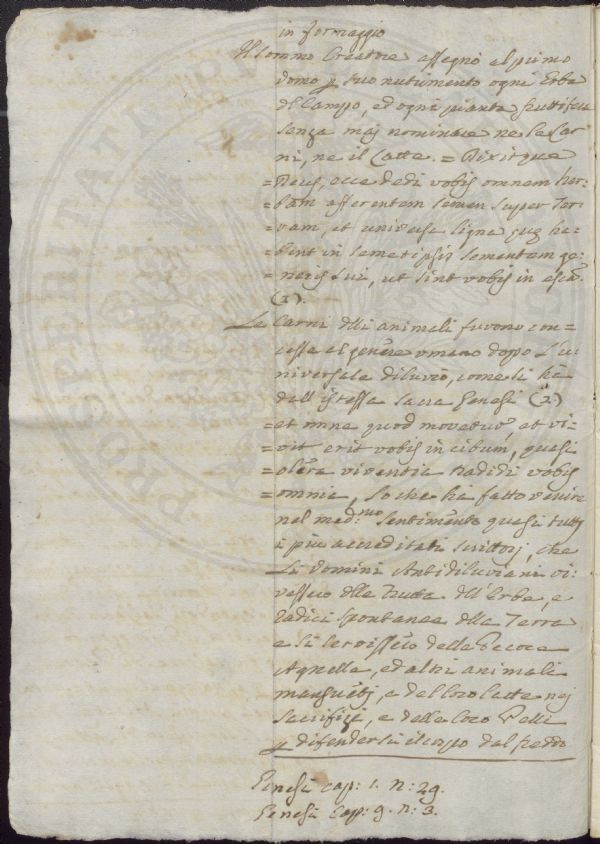 in formaggio
Il sommo Creatore assegnò al primo
Uomo p suo nutrimento ogni Erba
del Campo, ed ogni pianta fruttifera
senza maj nominare ne le Car
ni, ne il Latte. = Dixitque
= Deus, ecce dedi vobis omnem her=
= bam afferentem semen super Ter=
ram, et universa ligna quæ ha=
bent in semetipsis sementem ge=
= neris sui, ut sint vobis in escã.
(1).
Le Carni dlli animali furono con=
cesse al genere umano dopo l'u=
niversale diluvio, come si hà
dall'istessa sacra Genesi (2)
= et omne quod movetur, et vi=
= vit erit vobis in cibum, quasi
= olera virentia tradidi vobis
= omnia, lo che ha fatto venire
nel med:mo sentimento quasi tutti
i più accreditati scrittorj, che
li Uomini Antidiluviani vi=
vessero dlle frutta dll'Erbe, e
radici spontanee dlla Terra
e si servissero delle Pecore
Agnelle, ed altri animali
mansuetj, e del loro latte nej
sacrifizj, e delle loro Pelli
p difendersi il corpo dal freddo
Genesi cap: 1. n: 29.
Genesi Cap: 9. n: 3.
PROSPERITATI